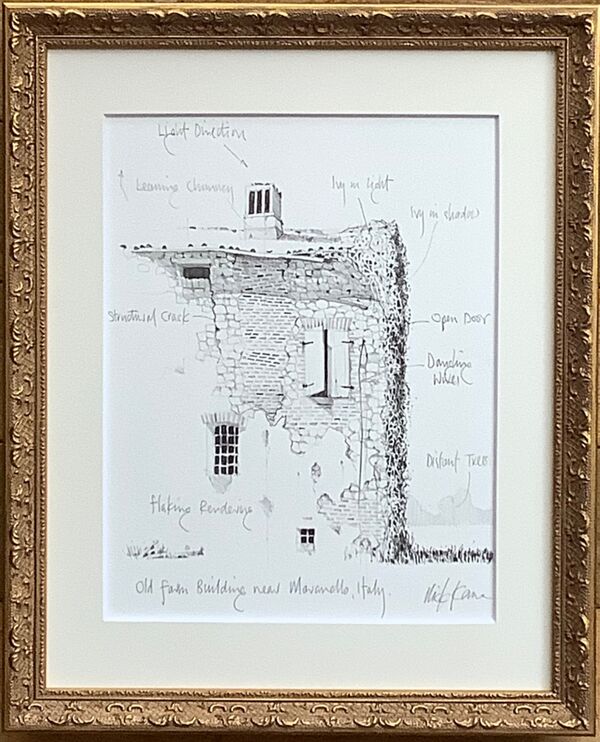 Light Direction
Leaning Chimney
Ivy in light
Ivy in shadow
Structural Crack
Open Door
Dangling
Distant Trees
Flaking Rendering
Old farm Building near Maranello, Italy.